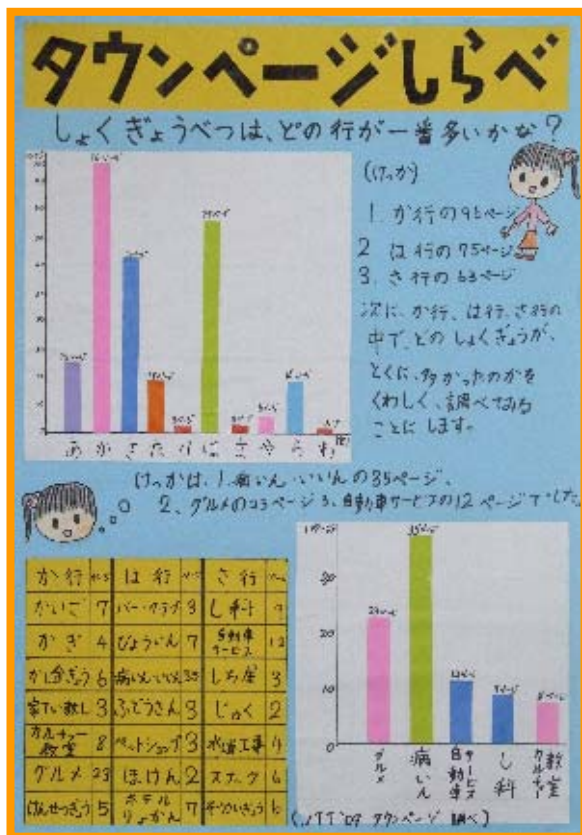 タウンページしらべ
しょくぎょうべつは、どの行が一番多いかな?
(けっか)
1. か行の95ページ
2 は行の75ページ
3. さ行の63ページ
次に、か行、は行、さ行の
中で、どのしょくぎょうが、
とくに、多かったのかを
くわしく、調べてみる
ことにします。
あ か さ た な は ま や ら わ
けっかは、1.病いん・いいんの35ページ、
2、グルメの23ページ 3、自動車サービスの12ページでした。
か行 は行 さ行
かいご 7 バー・クラブ 3 し科 9
かぎ 4 びよういん 7 自動車サービス 12
6 病いん・いいん 35 しち屋 3
3 ふどうさん 3 じゅく 2
カルチャー教室 8 ペットショップ 3 水道工事 4
グルメ 23 ほけん 2 スナック 6
けんせつぎょう 5 ホテルりょかん 7
30
20
10
0
グルメ
病いん
自動車サービス
し科
カルチャー教室
(NTT'09 タウンページ 調べ)